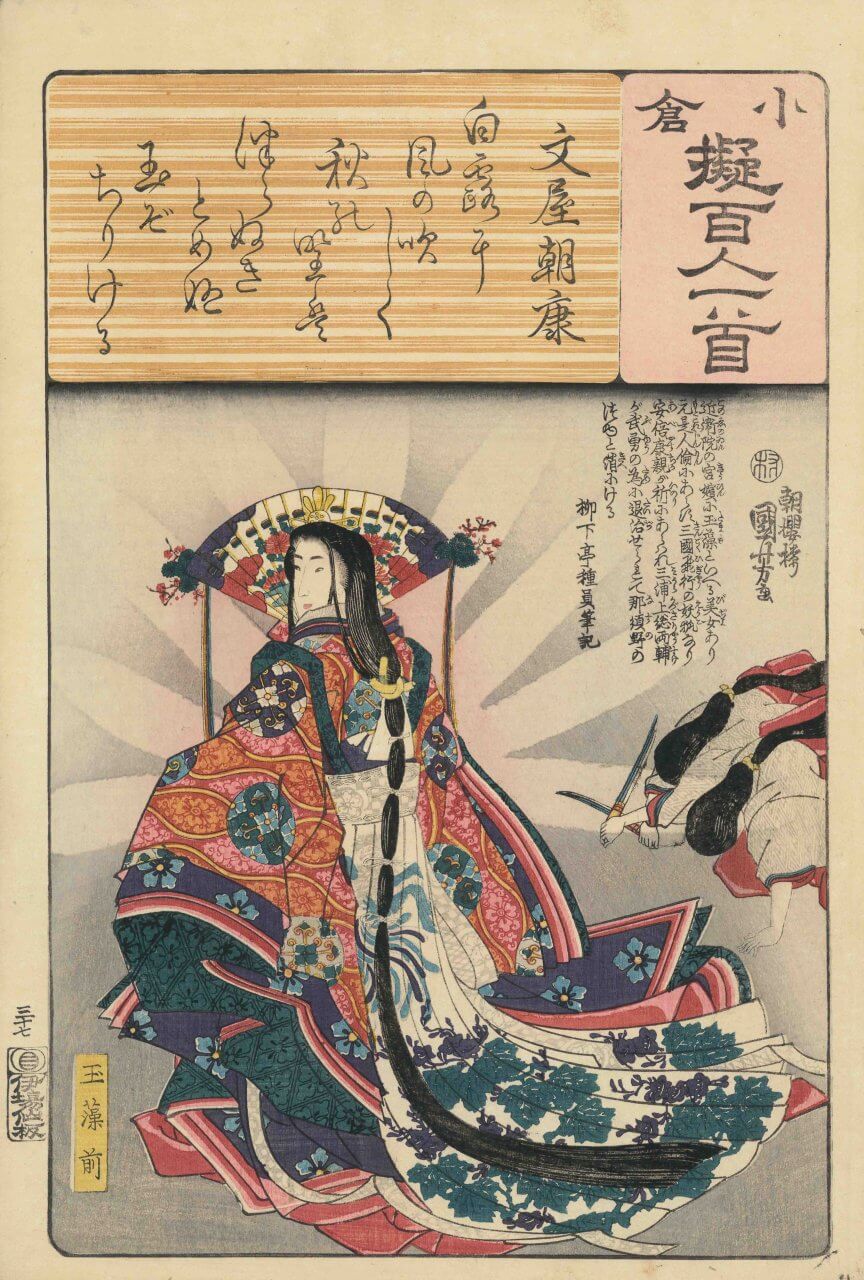 小倉
擬百人一首
文屋朝康
白露に
風の吹
しく
秋の
野は
つらぬき
とめぬ
玉ぞ
ちりける
朝櫻楼
國芳画
近衛院の宮嬪に玉藻といへる美女あり
元是人倫にあらず三國飛行の妖狐なり
安倍康親が祈にあらはれ三浦上総両輔
が武勇の為に退治せられて那須野の
つゆと消にける
柳下亭種員筆記
三十七
伊場仙板
玉藻前